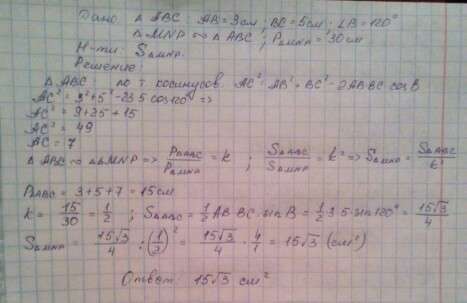 Дано: △ ABC: AB = 3см; BC = 5см; ∠B = 120°
△ MNP ∾ △ ABC; P△MNP = 30см
Н-ти: S△MNP.
Решение:
△ ABC: по т. косинусов AC² = AB² + BC² - 2AB·BC cosB
AC² = 3² + 5² - 2·3·5 cos120° =>
AC² = 9 + 25 + 15
AC² = 49
AC = 7
△ ABC ∾ △ MNP => P△ABC/P△MNP = k ; S△ABC/S△MNP = k² => S△MNP = S△ABC/k²
P△ABC = 3 + 5 + 7 = 15см
k = 15/30 = 1/2 ; S△ABC = 1/2 AB·BC·sinB = 1/2 3·5·sin120° = 15√3/4
S△MNP = 15√3/4 : (1/2)² = 15√3/4 · 4/1 = 15√3 (см²)
Ответ: 15√3 см²